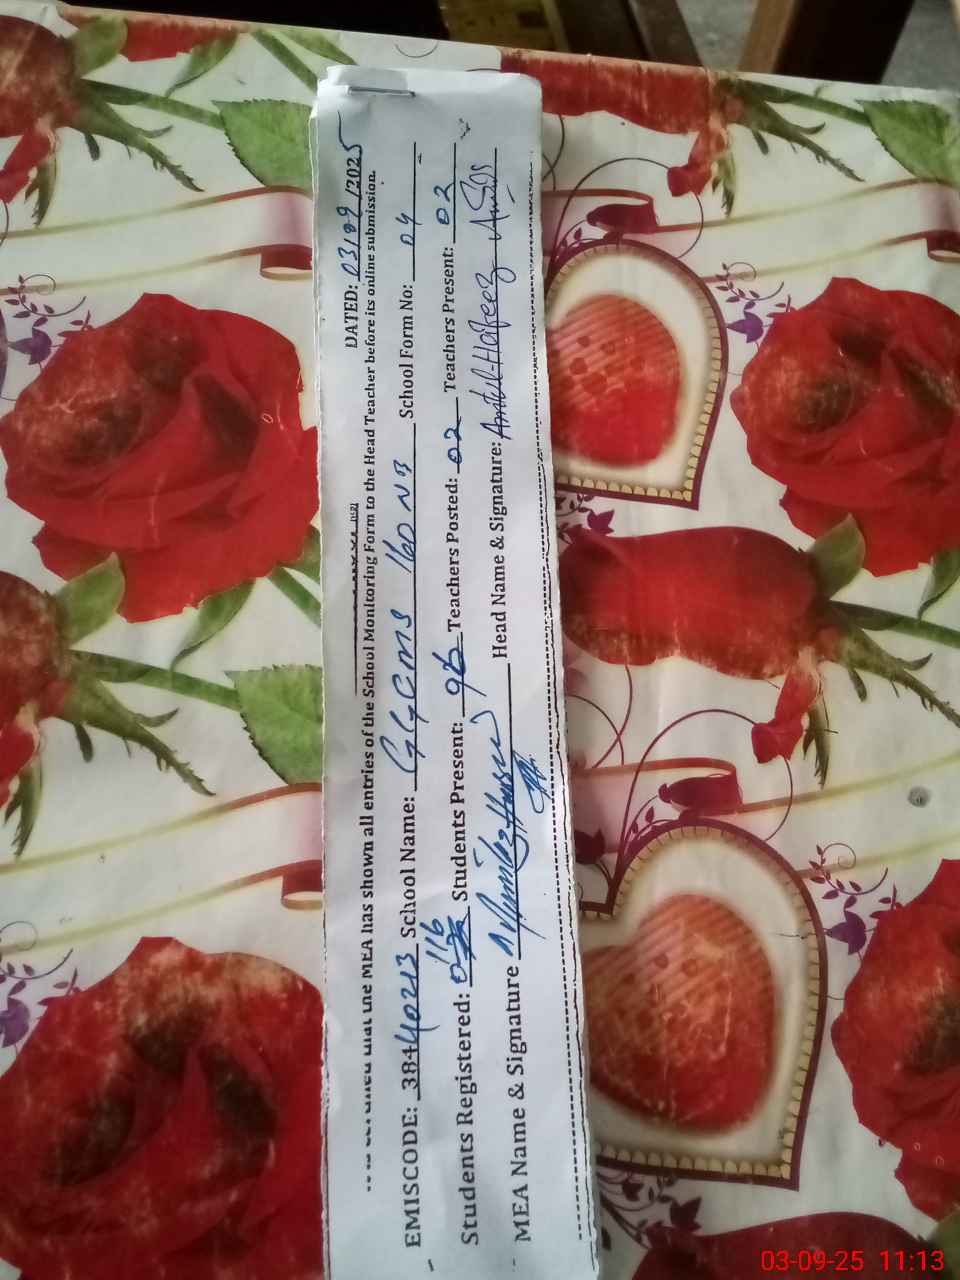 DATED: 03/09/2025
the MEA has shown all entries of the School Monitoring Form to the Head Teacher before its online submission.
EMISCODE: 38440213 School Name: GGCMS 160 NB School Form No: 04
Students Registered: 116 Students Present: 96 Teachers Posted: 02 Teachers Present: 02
MEA Name & Signature Head Name & Signature: Amtul-Hafeez
03-09-25 11:13